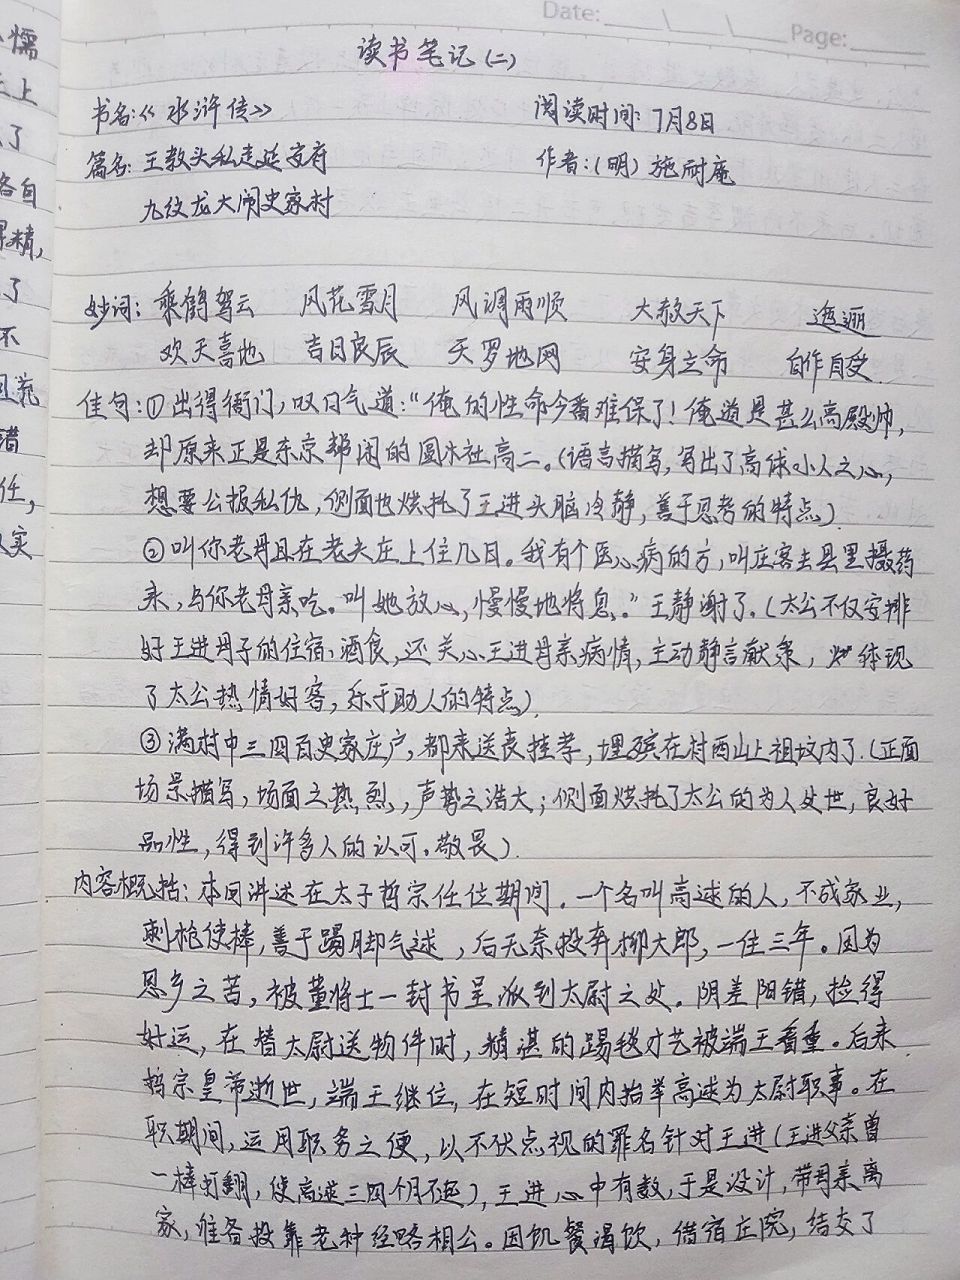 Date: Page:
读书笔记(二)
书名:《水浒传》 阅读时间:7月8日
篇名:王教头私走延安府 作者:(明)施耐庵
九纹龙大闹史家村
妙词:乘鹤驾云 风花雪月 风调雨顺 大赦天下 迤逦
欢天喜地 吉日良辰 天罗地网 安身立命 自作自受
佳句:①出得衙门,叹口气道:“俺的性命今番难保了!俺道是甚么高殿帅,
却原来正是东京帮闲的圆社高二。(语言描写,写出了高俅小人之心,
想要公报私仇,侧面也烘托了王进头脑冷静,善于思考的特点)
②叫你老母且在老夫庄上住几日。我有个医心病的方,叫庄客去县里撮药
来,与你老母亲吃。叫她放心,慢慢地将息。”王静谢了.(太公不仅安排
好王进母子的住宿、酒食,还关心王进母亲病情,主动静言献策,体现
了太公热情好客,乐于助人的特点)
③满村中三四百史家庄户,都来送丧挂孝,埋殡在村西山上祖坟内了.(正面
场景描写,场面之热烈,声势之浩大;侧面烘托了太公的为人处世,良好
品性,得到许多人的认可,敬畏)
内容概括:本回讲述在太子哲宗任位期间,一个名叫高逑的人,不成家业,
刺枪使棒,善于踢脚气逑,后无奈投奔柳大郎,一住三年。因为
思乡之苦,被董将士一封书呈派到太尉之处。阴差阳错,捡得
好运,在替太尉送物件时,精湛的踢毬才艺被端王看重。后来
哲宗皇帝逝世,端王继位,在短时间内抬举高逑为太尉职事。在
职期间,运用职务之便,以不伏点视的罪名针对王进(王进父亲曾
一棒打翻,使高逑三四个月不起),王进心中有数,于是设计,带母亲离
家,准备投靠老种经略相公。因饥餐渴饮,借宿庄院,结交了